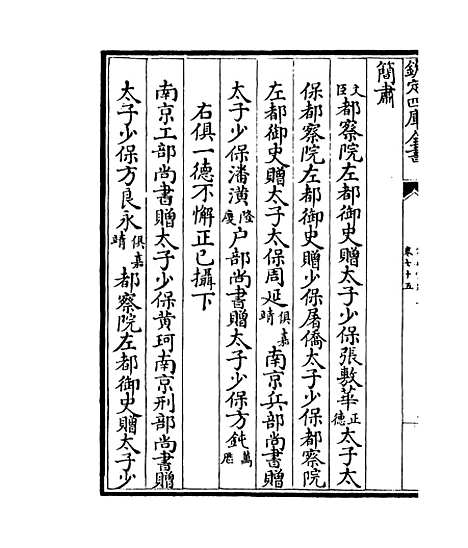 欽定四庫全書
卷七十五
簡肅
文臣都察院左都御史贈太子少保張敷華正德太子太
保都察院左都御史贈少保屠僑太子少保都察院
左都御史贈太子太保周延俱嘉靖南京兵部尚書贈
太子少保潘潢隆慶户部尚書贈太子少保方鈍萬厯
右俱一德不懈正已攝下
南京工部尚書贈太子少保黄珂南京刑部尚書贈
太子少保方良永俱嘉靖都察院左都御史贈太子少